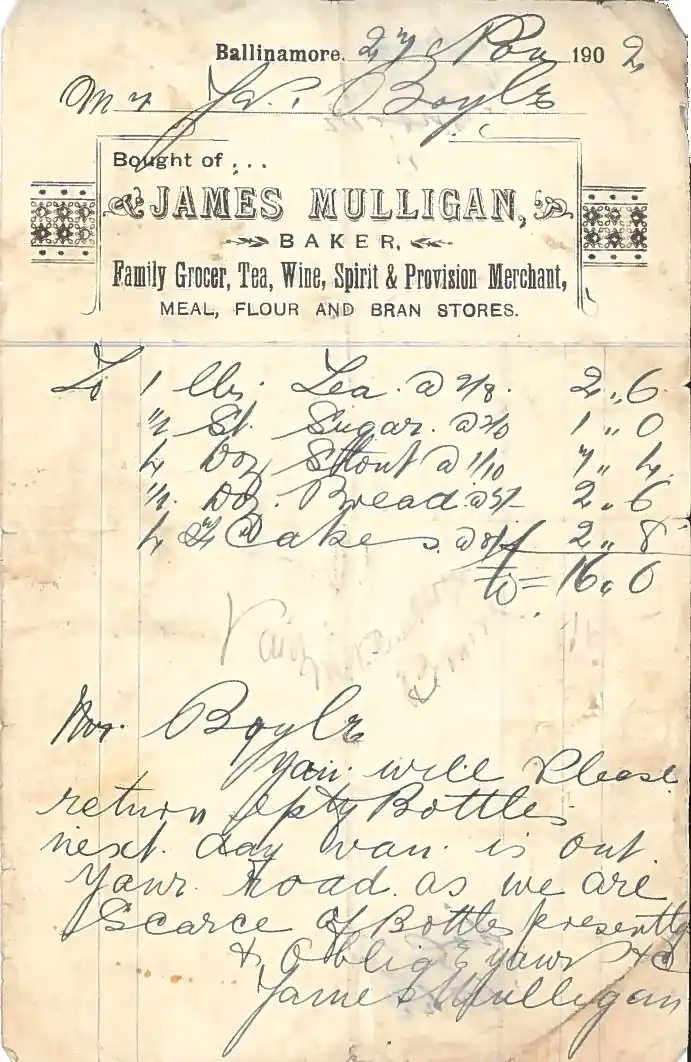 Ballinamore, 27 Nov 1902
Mr Js. Boyle
Bought of ...
JAMES MULLIGAN,
BAKER,
Family Grocer, Tea, Wine, Spirit & Provision Merchant,
MEAL, FLOUR AND BRAN STORES.
To 1 lbs. Tea. @ 2/8. 2 ,, 6
1/2 St. Sugar. @ 2/0 1 ,, 0
4 Doz Stout @ 1/10 7 ,, 4
1/2 Doz. Bread @ 5/- 2 ,, 6
4 Cakes @ 8d 2 ,, 8
16 ,, 0
Paid
&
Mr. Boyle
You will Please
return epty Bottles
next day van is out
your road as we are
Scarce of Bottles presently
& Oblige yours &c
James Mulligan